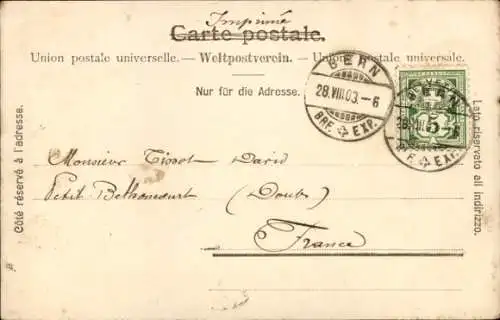 Imprimé
Carte postale.
Union postale universelle. — Weltpostverein. — Unione postale universale.
Nur für die Adresse.
BERN
28.VIII.03.-6
BRF. EXP.
BERN
28.VIII.03.-6
BRF. EXP.
5
Côté réservé à l'adresse.
Lato riservato all indirizzo.
Monsieur Tissot David
Petit Bethoncourt
(Doubs)
France